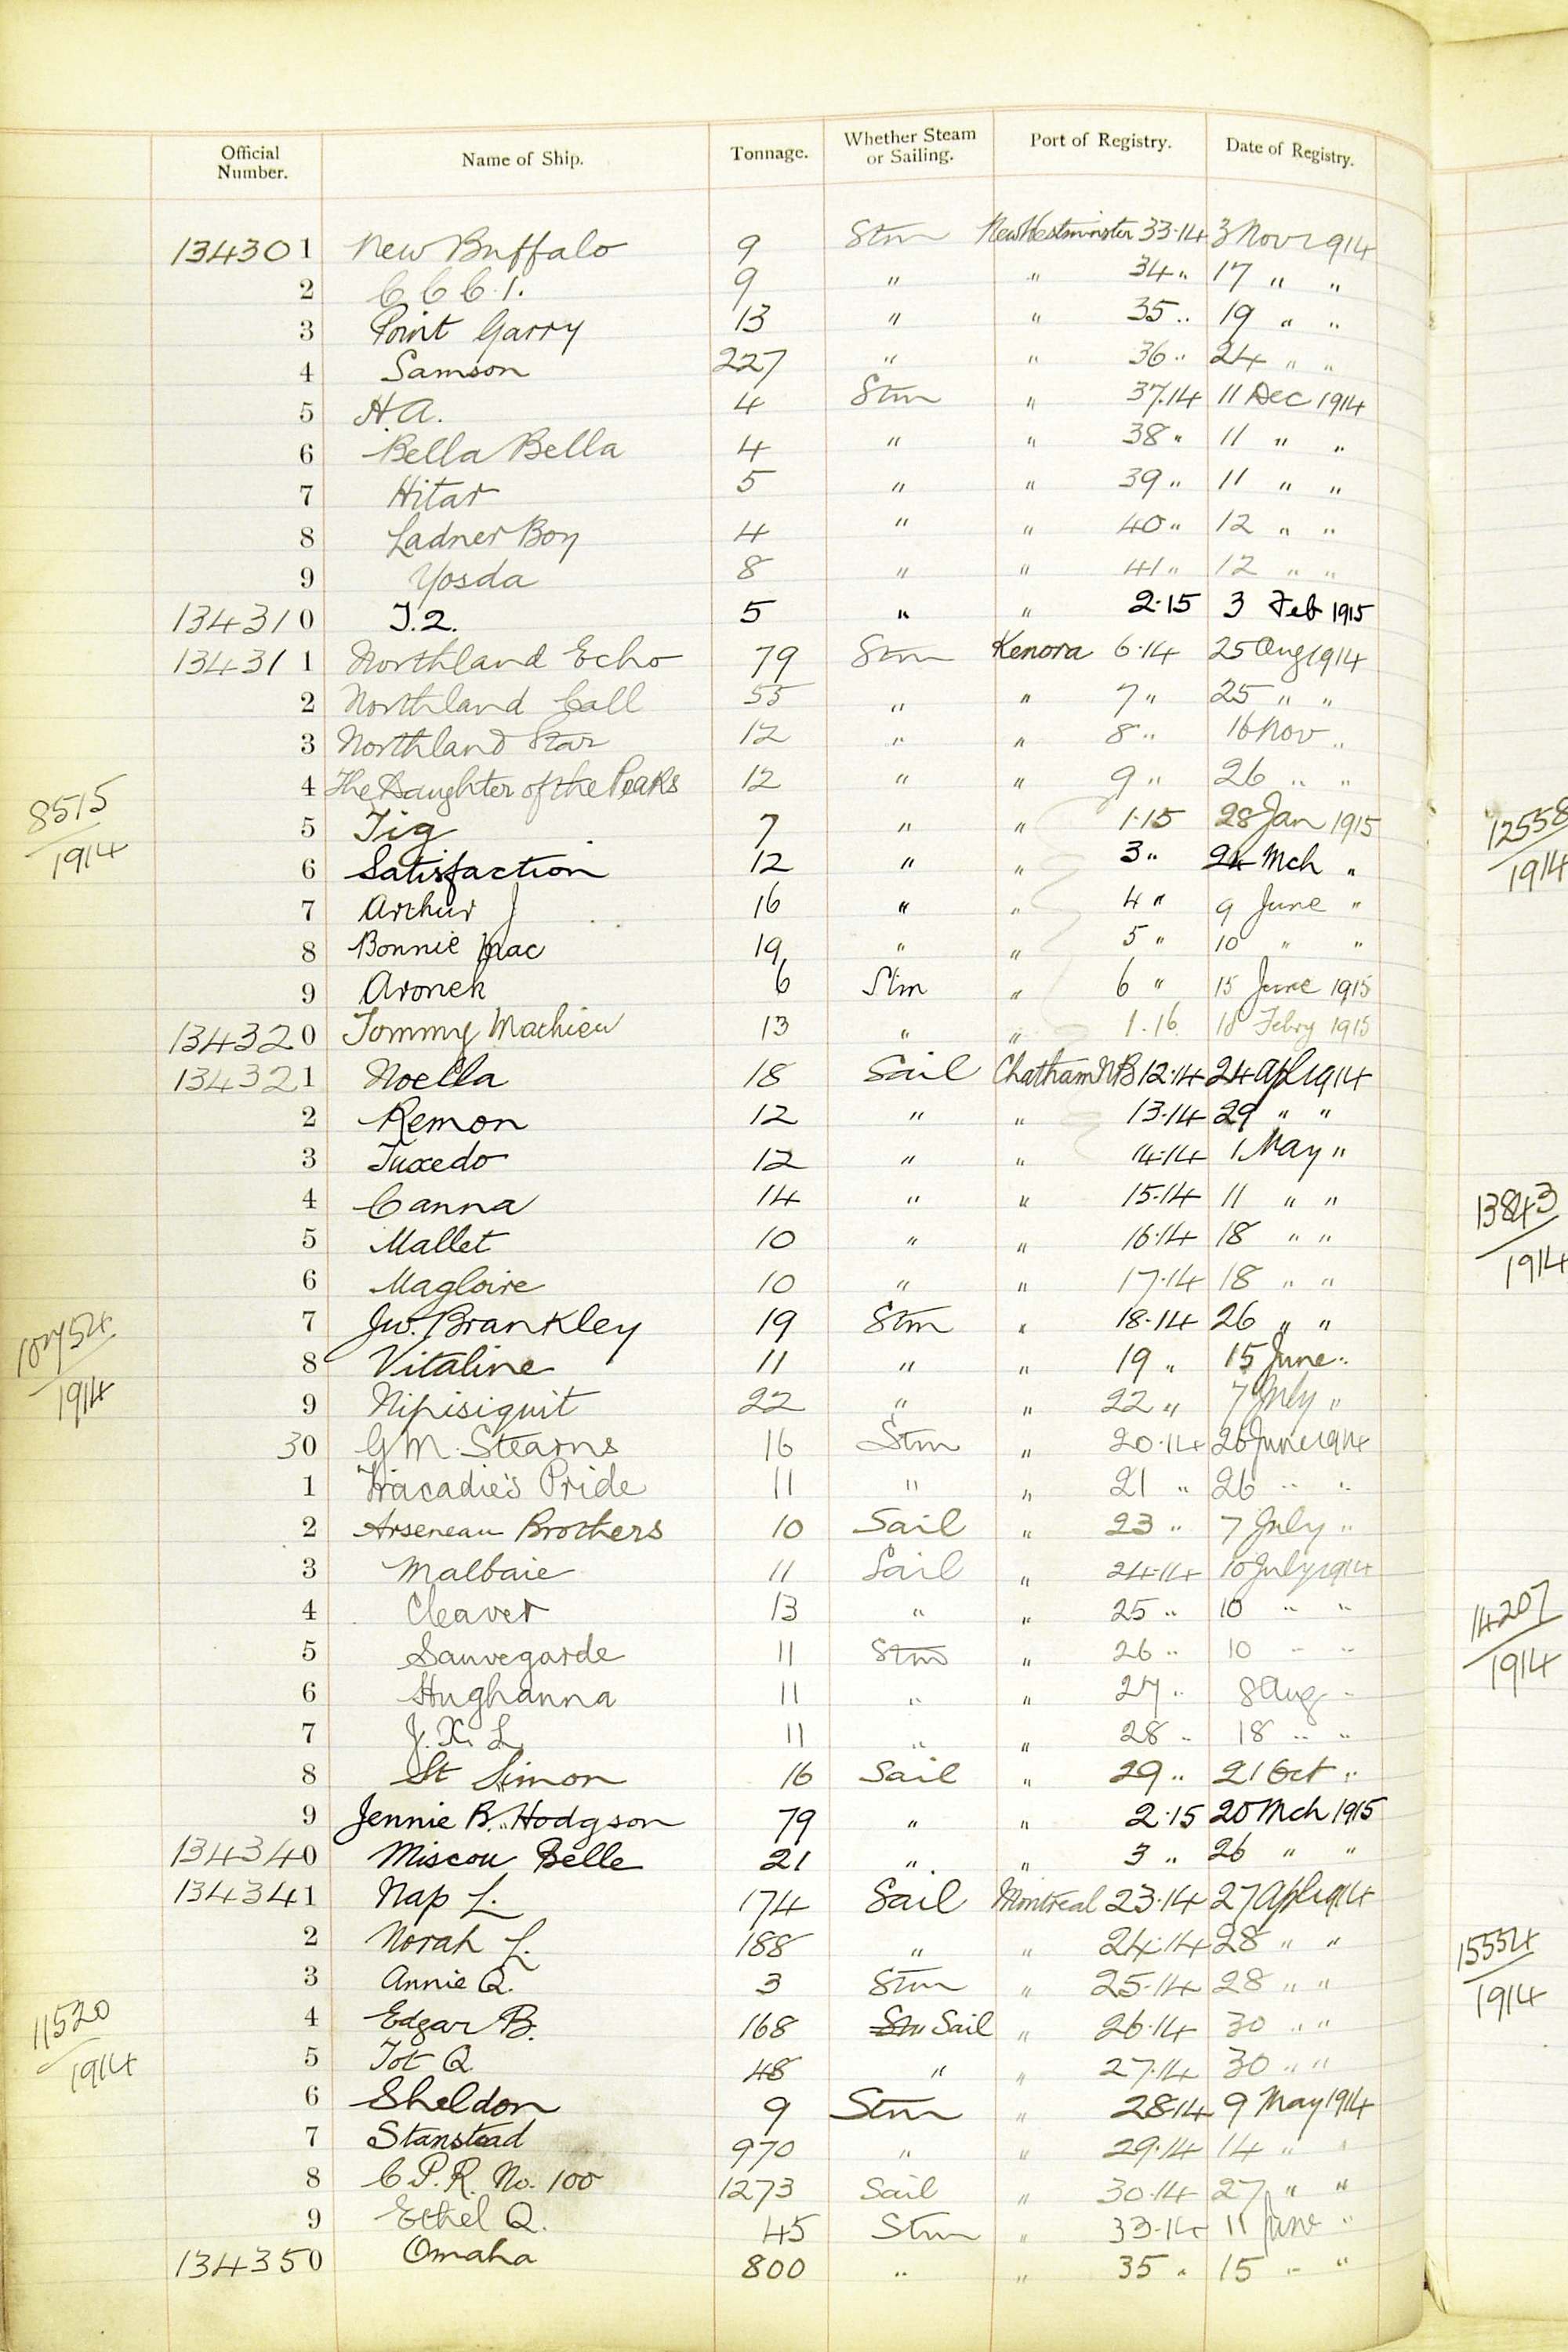 Official Number. Name of Ship. Tonnage. Whether Steam or Sailing. Port of Registry. Date of Registry.
134301 New Buffalo 9 Stm New Westminster 33·14 3 Nov 1914
2 C C C 1. 9 " " 34 " 17 " "
3 Point Garry 13 " " 35 " 19 " "
4 Samson 227 " " 36 " 24 " "
5 H.A. 4 Stm " 37.14 11 Dec 1914
6 Bella Bella 4 " " 38 " 11 " "
7 Hitar 5 " " 39 " 11 " "
8 Ladner Boy 4 " " 40 " 12 " "
9 Yosda 8 " " 41 " 12 " "
134310 J.2. 5 " " 2·15 3 Feb 1915
134311 Northland Echo 79 Stm Kenora 6·14 25 Aug 1914
2 Northland Call 55 " " 7 " 25 " "
3 Northland Star 12 " " 8 " 16 Nov "
4 The Daughter of the Peaks 12 " " 9 " 26 " "
8515
1914
5 Tig 7 " " 1·15 28 Jan 1915
12558
1914
6 Satisfaction 12 " " 3 " 24 Mch "
7 Arthur J 16 " " 4 " 9 June "
8 Bonnie Mac 19 " " 5 " 10 " "
9 Aronek 6 Stm " 6 " 15 June 1915
134320 Tommy Mathieu 13 " " 1·16 Febry 1915
134321 Noella 18 Sail Chatham NB 12·14 24 Apl 1914
2 Remon 12 " " 13·14 29 " "
3 Tuxedo 12 " " 14·14 1 May "
4 Canna 14 " " 15·14 11 " "
13843
1914
5 Mallet 10 " " 16·14 18 " "
6 Magloire 10 " " 17·14 18 " "
7 J.W. Brankley 19 Stm " 18·14 26 " "
10754
1914
8 Vitaline 11 " " 19 " 15 June "
9 Nipisiquit 22 " " 22 " 7 July "
30 G M Stearns 16 Stm " 20·14 26 June 1914
1 Tracadie's Pride 11 " " 21 " 26 " "
2 Arseneau Brothers 10 Sail " 23 " 7 July "
3 Malbaie 11 Sail " 24·14 10 July 1914
4 Cleaver 13 " " 25 " 10 " "
14207
1914
5 Sauvegarde 11 Stm " 26 " 10 " "
6 Hughanna 11 " " 27 " 8 Aug "
7 J. X. L. 11 " " 28 " 18 " "
8 St Simon 16 Sail " 29 " 21 Oct "
9 Jennie B. Hodgson 79 " " 2·15 20 Mch 1915
134340 Miscou Belle 21 " " 3 " 26 " "
134341 Nap L. 174 Sail Montreal 23·14 27 Apl 1914
2 Norah L. 188 " " 24·14 28 " "
15554
1914
3 Annie Q. 3 Stm " 25·14 28 " "
4 Edgar B. 168 Stm Sail " 26·14 30 " "
11520
1914
5 Tot Q 48 " " 27·14 30 " "
6 Sheldon 9 Stm " 28·14 9 May 1914
7 Stanstead 970 " " 29·14 14 " "
8 C.P.R. No. 100 1273 Sail " 30·14 27 " "
9 Ethel Q. 45 Stm " 33·14 11 June "
134350 Omaha 800 " " 35 " 15 " "